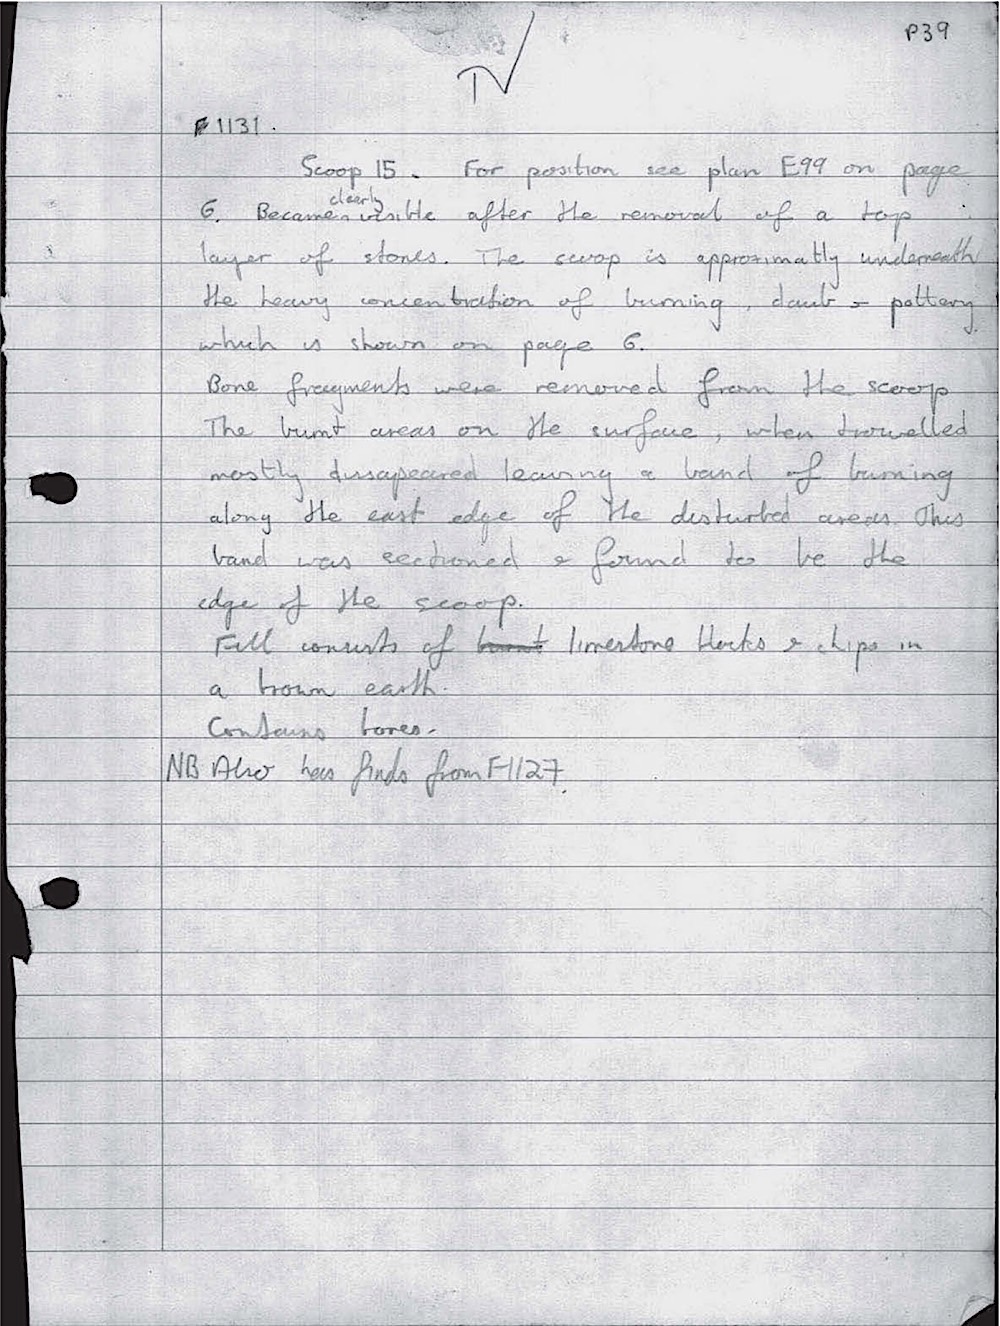 P39
F1131.
Scoop 15. For position see plan E99 on page
clearly
6. Became visible after the removal of a top
layer of stones. The scoop is approximatly underneath
the heavy concentration of burning, daub & pottery
which is shown on page 6.
Bone fragments were removed from the scoop
The burnt areas on the surface, when trowelled
mostly dissapeared leaving a band of burning
along the east edge of the disturbed areas. This
band was sectioned & found to be the
edge of the scoop.
Fill consists of burnt limestone blocks & chips in
a brown earth.
Contains bones.
NB Also has finds from F1127.